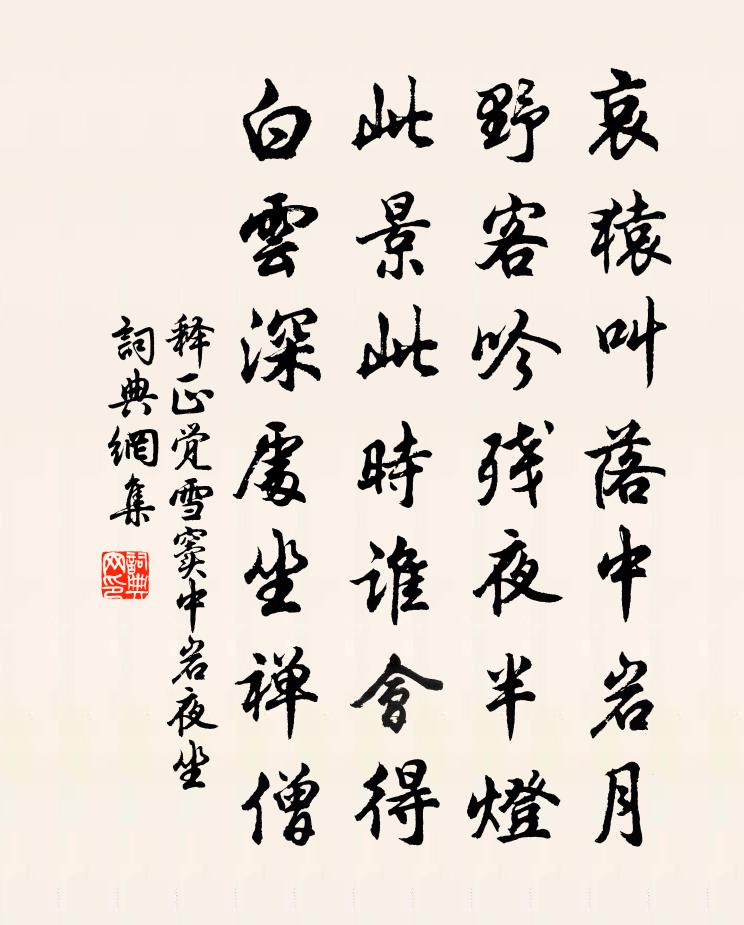 哀猿叫落中岩月
野客吟残夜半燈
此景此時誰會得
白雲深處坐禅僧
释正觉雪窦中岩夜坐
詞典網集
詞典網印